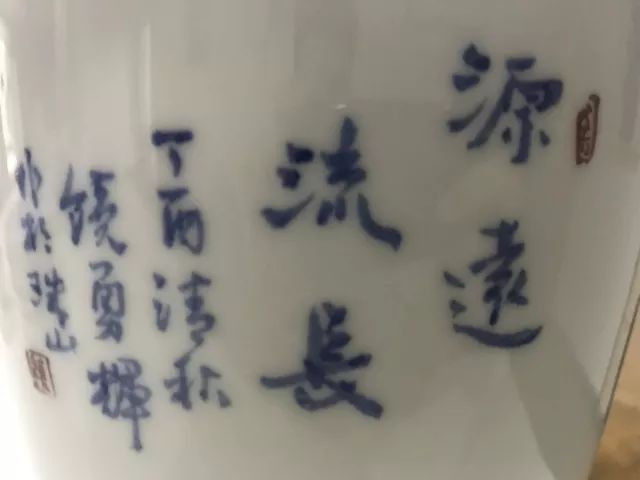 源遠
流長
丁酉清秋
饒勇輝
作於珠山